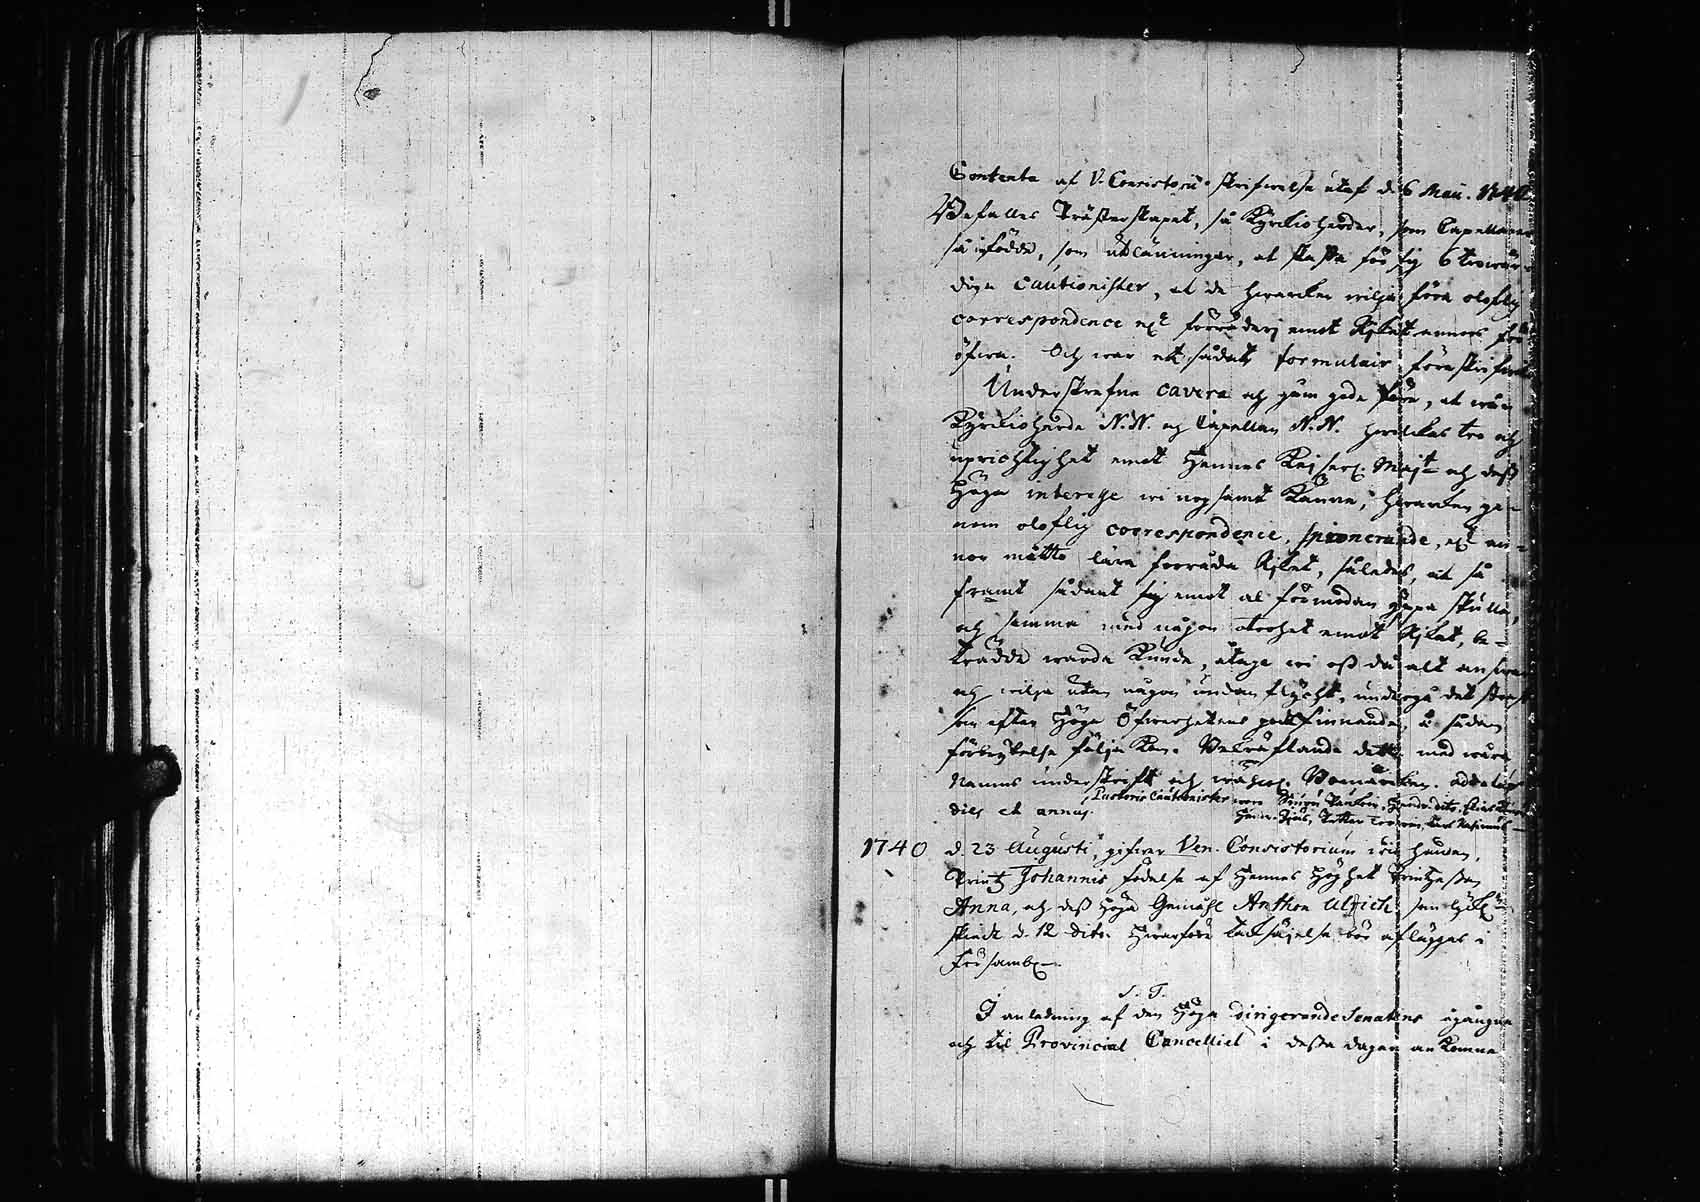 Contenta af V. Consistorii skrifwelse utaf d. 6 Maii. 1740
Befalles Prästerskapet, så Kyrkioherder, som Capellaner
så infödde, som utlänningar, at skaffa för sig 6 trowär-
diga Cautionister, at de hwarcken wilja föra oloflig
correspondence ell. förräderj emot Rjket annors för
öfwa. Och war ett sådant formulair föreskrifwit
Underskrefne cavera och gåm goda före, at wår
Kyrkioherde N.N. och Capellan N.N. hwilkas tro och
uprichtighet emot Hennes Kejserl. Majt och dess
Höga interesse wi nogsamt känna, hwarken ge-
nom oloflig correspondence, spionerande, ell. an-
nor måtto lära förråda Rjket, således, at så
framt sådant sig emot al förmodan yppa skulle,
och samma med någon otrohet emot Rjket, be-
trädde warda kunde, åtage wi oss då alt answar
och wilja utan någon undanflycht, undergå det straff
som efter Höga Öfwerhetens godtfinnande, å sådan
förbrytelse följa kan. Bekräftande detta med wåra
Namns underskrift och Bomärken.
dies et annus. Pastoris Cautionister woro
1740 d. 23 Augusti, gifwer Ven. Consistorium wid handen,
Printz Johannis födelse af Hennes Höghet Printzessan
Anna, och dess Höga Gemåhl Anthon Ulrich, som
skedt d. 12 dito. Hwarföre tacksäjelse bör afläggas i
Församl.
S. T.
I anledning af den Höga dirigerande Senatens ågångne
och til Provincial Cancelliet i dessa dagar ankomne